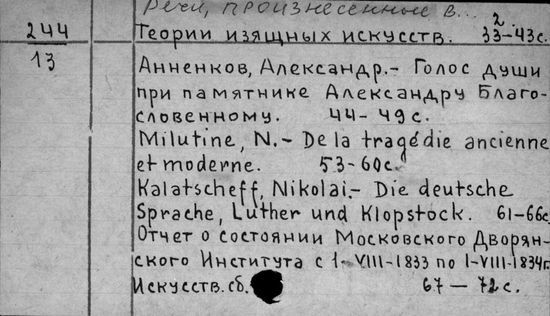 Речи, произнесенные в... 2.
244 Теории изящных искусств. 33-43с.
13 Анненков, Александр.- Голос души
при памятнике Александру Благо-
словенному. 44-49с.
Milutine, N.- De la tragédie ancienne
et moderne. 53-60с.
Kalatscheff, Nikolai.- Die deutsche
Sprache, Luther und Klopstock. 61-66с.
Отчет о состоянии Московского Дворян-
ского Института с 1-VIII-1833 по 1-VIII-1834г.
Искусств. сб. 67-72с.